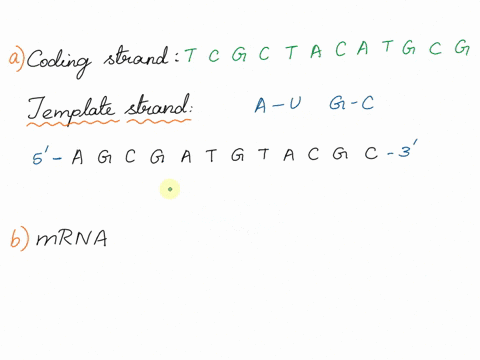 a) Coding strand: T C G C T A C A T G C G
Template strand: A-U G-C
5'- A G C G A T G T A C G C -3'
b) mRNA